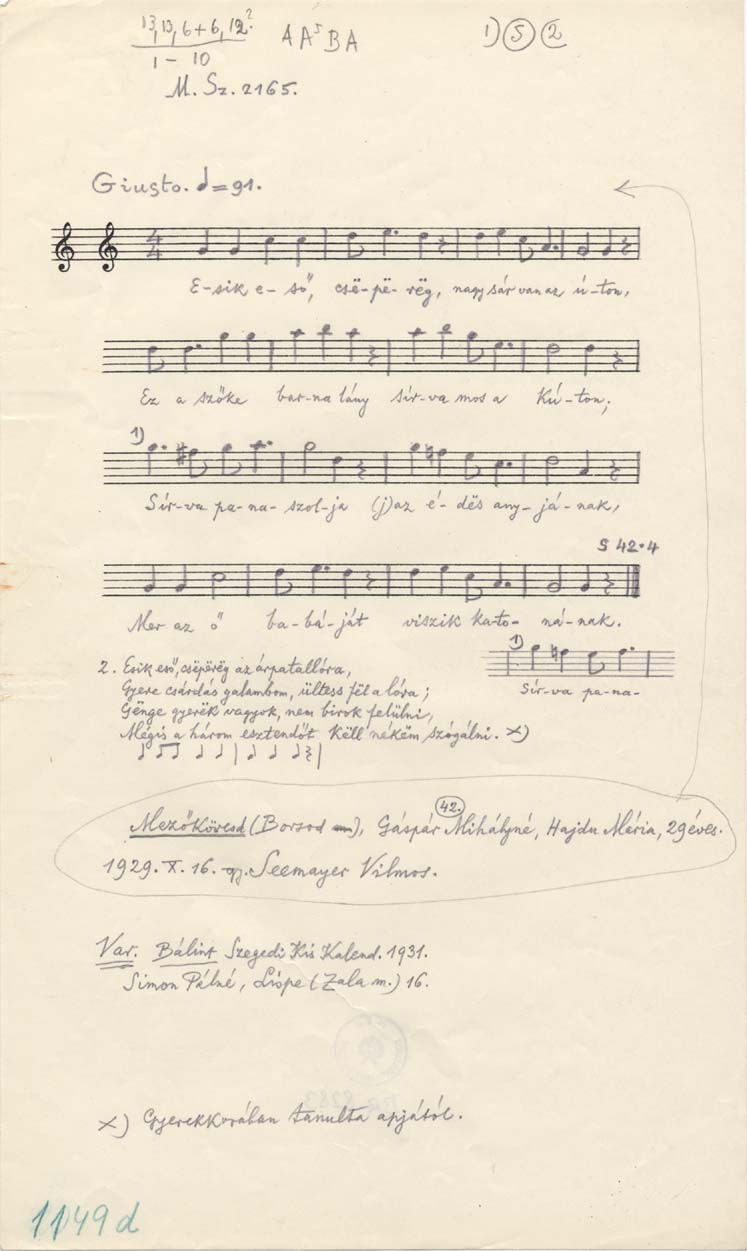 13, 13, 6+6, 12? AA⁵BA 1) 5 2
1 – 10
M. Sz. 2165.
Giusto. = 91.
4/4
E-sik e-ső, csë-pë-rëg, nagy sár van az ú-ton,
Ez a szőke bar-na lány sír-va mos a Kú-ton;
1)
Sír-va pa-na-szol-ja (j)az é-dës any-já-nak,
S 42.4
Mer az ő ba-bá-ját viszik ka-to-ná-nak.
1)
Sír-va pa-na-
2. Esik eső, csëpërëg az árpatallóra,
Gyere csárdás galambom, ültess fël a lóra;
Gënge gyerëk vagyok, nem birok felülni,
Mégis a három esztendőt Këll nékëm szógálni. x)
Mezőkövesd (Borsod), Gáspár Mihályné, Hajdu Mária, 29 éves.
42.
1929. X. 16. gy. Seemayer Vilmos.
Var. Bálint Szegedi Kis Kalend. 1931.
Simon Pálné, Lispe (Zala m.) 16.
x) Gyerekkorában tanulta apjától.
1149 d